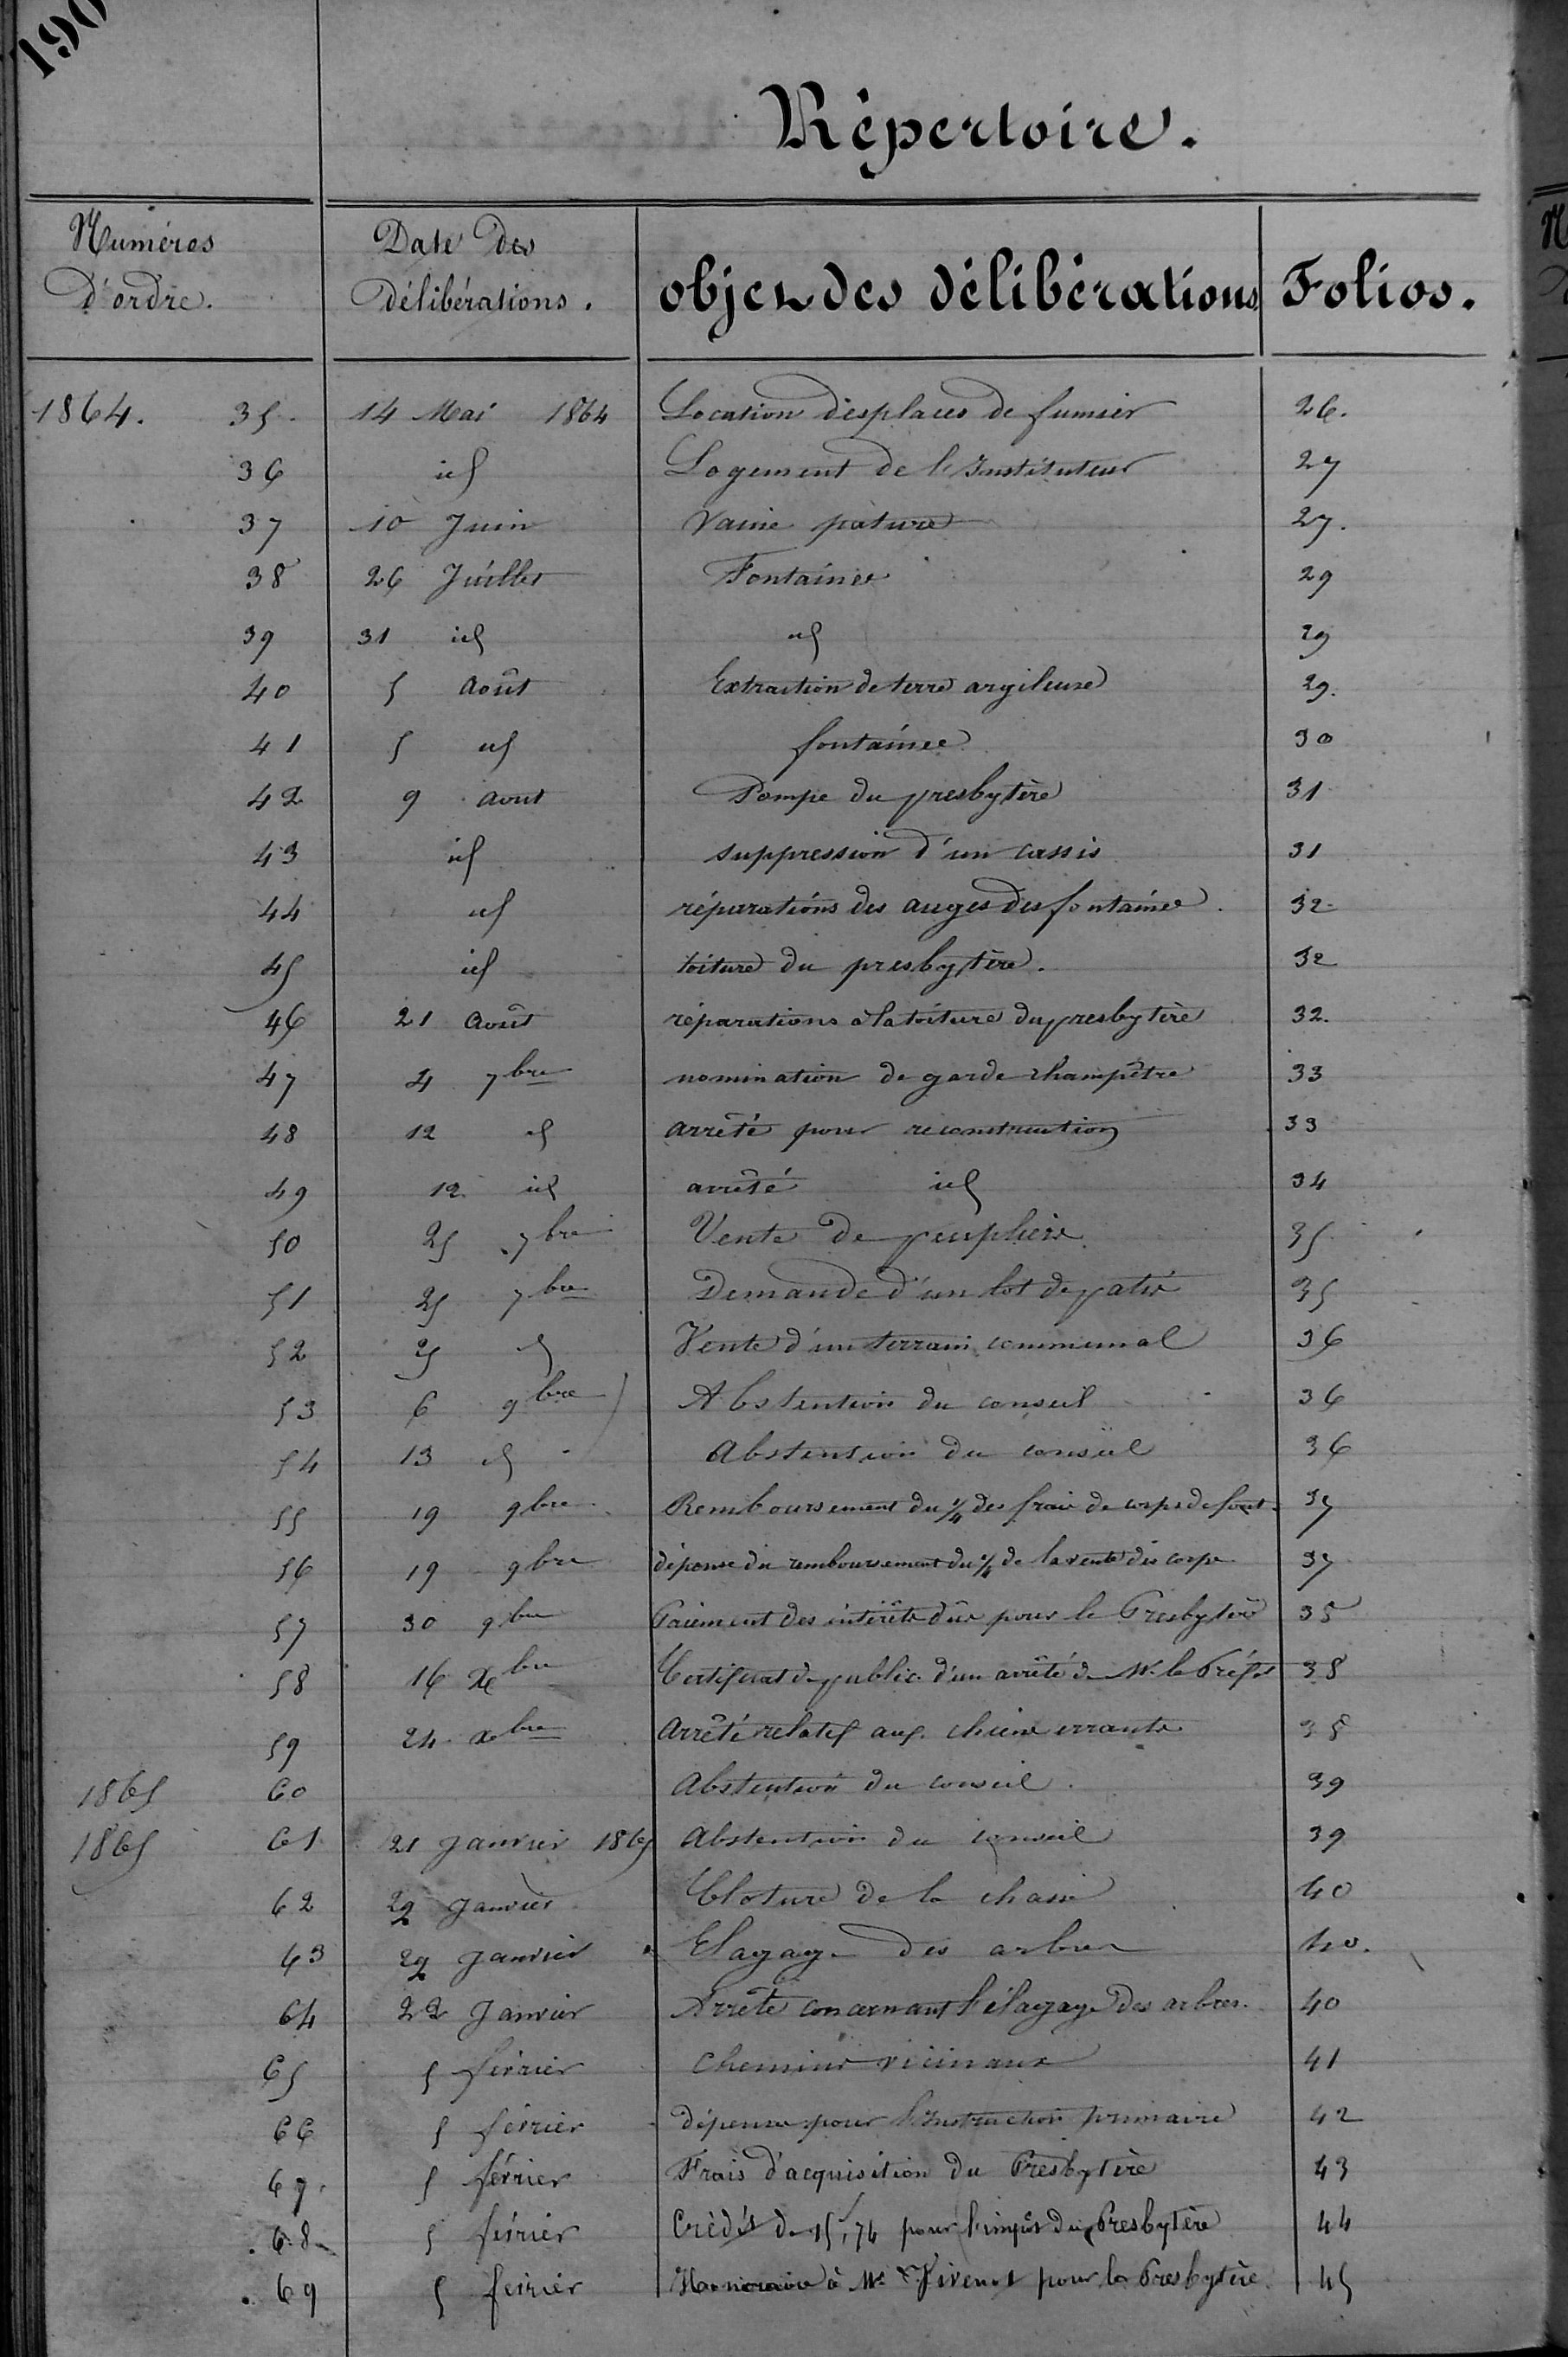 190
Répertoire.
Numéros d'ordre. Date des délibérations. objet des délibérations Folios.
1864. 35 14 Mai 1864 Location des places de fumier 26.
36 id Logement de l'Instituteur 27
37 10 Juin Vaine pature 27.
38 26 Juillet Fontaines 29
39 31 id id 29
40 5 Août Extraction de terre argileuse 29.
41 5 id fontaines 30
42 9 Aout Pompe du presbytère 31
43 id suppression d'un cassis 31
44 id réparations des auges des fontaines 32
45 id toiture du presbytère. 32
46 21 Août réparations à la toiture du presbytère 32.
47 4 7bre nomination de garde champêtre 33
48 12 id arrêté pour reconstruction 33
49 12 id arrêté id 34
50 25 7bre Vente de peupliers 35
51 25 7bre Demande d'un lot de patis 35
52 25 id Vente d'un terrain communal 36
53 6 9bre Abstention du conseil 36
54 13 id Abstension du conseil 36
55 19 9bre Remboursement du 1/4 des frais de corps de font. 37
56 19 9bre dépense du remboursement du 1/4 de la vente des corps 37
57 30 9bre Paiement des intérêts dûs pour le Presbytère 38
58 16 Xbre Certificat de public. d'un arrêté de Mr. le Préfet 38
59 24 xbre Arrêté relatif aux chiens errants 38
1865 60 Abstention du conseil. 39
1865 61 21 Janvier 1865 Abstention du conseil 39
62 22 Janvier Cloture de la chasse 40
63 22 Janvier Elagage des arbres 40.
64 22 Janvier Arrêté concernant l'élagage des arbres. 40
65 5 février Chemins vicinaux 41
66 5 février dépenses pour l'Instruction primaire 42
67. 5 février Frais d'acquisition du Presbytère 43
68 5 février Crédit de 15f,74 pour l'impôt du Presbytère 44
69 5 février Honoraire à Mr Vivenot pour le Presbytère. 45